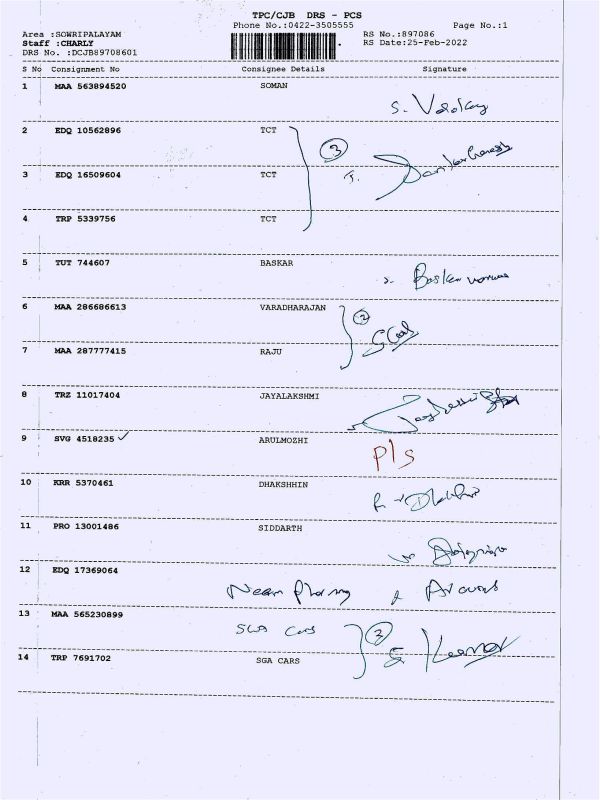 TPC/CJB DRS - PCS
Phone No.:0422-3505555 Page No.:1
Area :SOWRIPALAYAM RS No.:897086
Staff :CHARLY RS Date:25-Feb-2022
DRS No. :DCJB89708601
S No Consignment No Consignee Details Signature
1 MAA 563894520 SOMAN
2 EDQ 10562896 TCT
3
3 EDQ 16509604 TCT
4 TRP 5339756 TCT
5 TUT 744607 BASKAR
6 MAA 286686613 VARADHARAJAN
2
7 MAA 287777415 RAJU
8 TRZ 11017404 JAYALAKSHMI
9 SVG 4518235 ✓ ARULMOZHI
P/s
10 KRR 5370461 DHAKSHHIN
11 PRO 13001486 SIDDARTH
12 EDQ 17369064
13 MAA 565230899
SGA Cars
14 TRP 7691702 SGA CARS